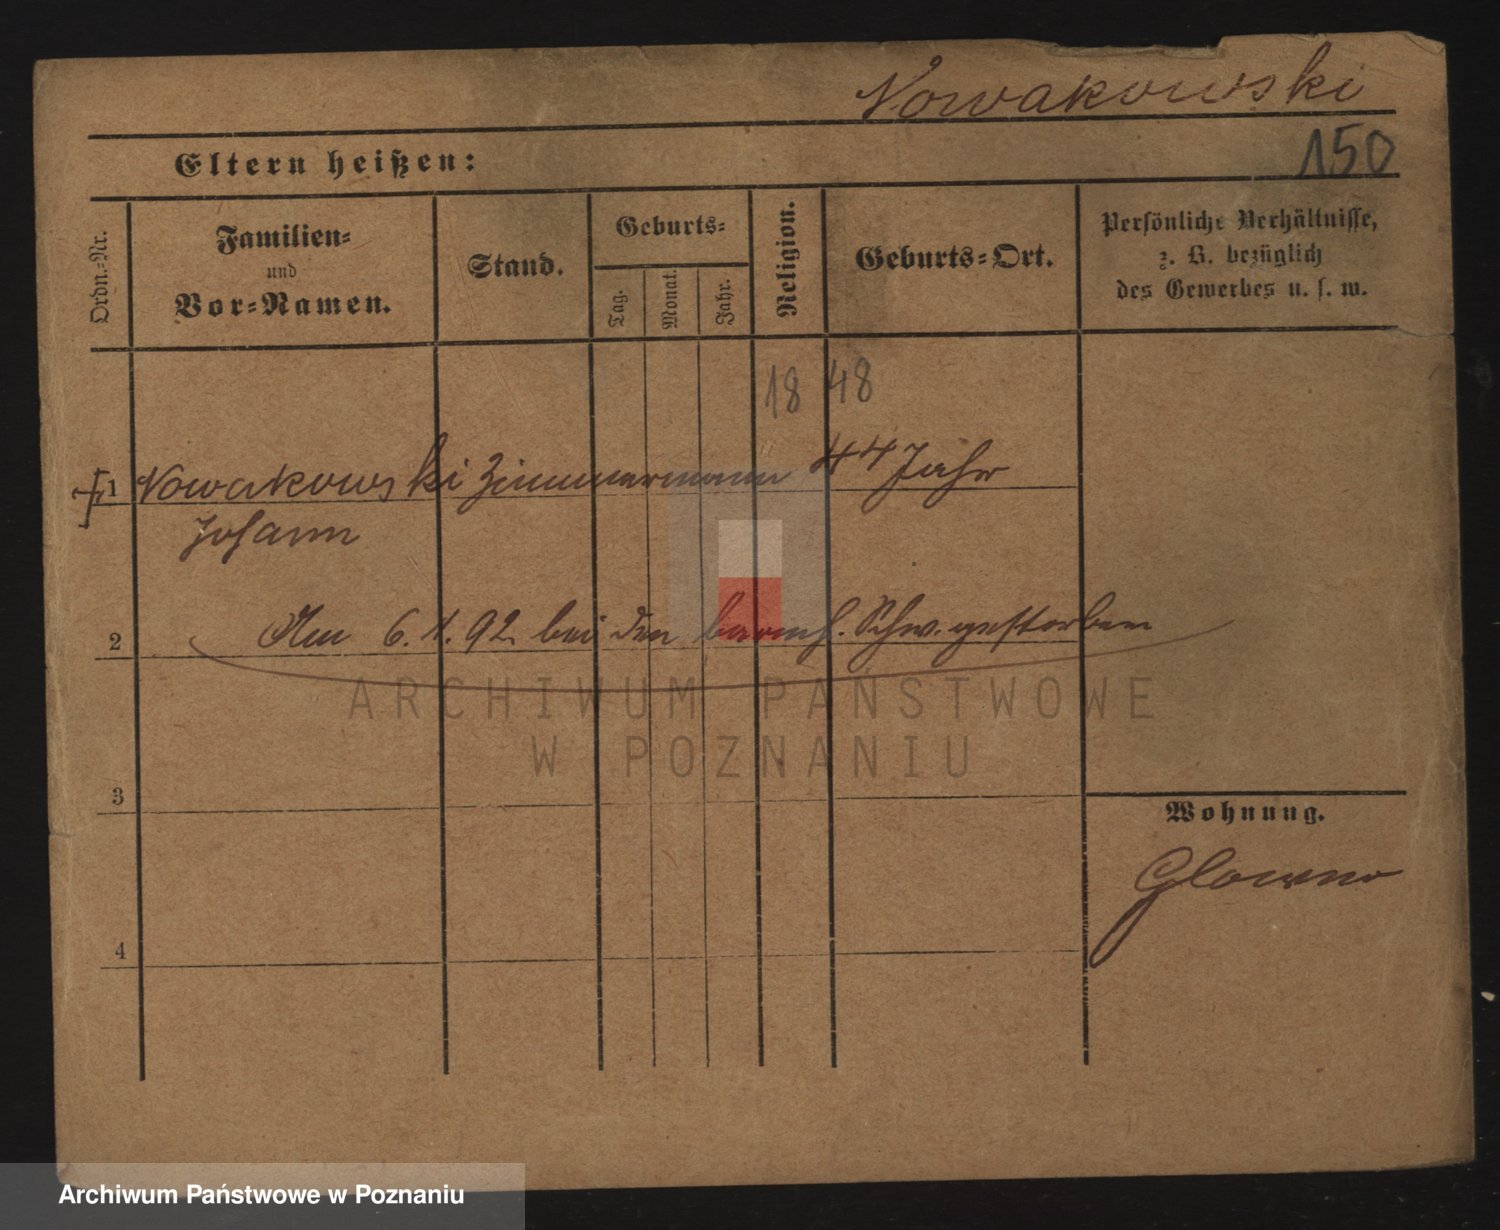 Nowakowski
150
Eltern heißen:
Ordn.-Nr.
Familien-
und
Vor-Namen.
Stand.
Geburts-
Tag.
Monat.
Jahr.
Religion.
Geburts-Ort.
Persönliche Verhältnisse,
z. B. bezüglich
des Gewerbes u. s. w.
18 48
1 Nowakowski Zimmermann 44 Jahr
Johann
2 Am 6. 1. 92 bei den barmh. Schw. gestorben
ARCHIWUM PAŃSTWOWE
W POZNANIU
3
Wohnung.
Glowno
4
Archiwum Państwowe w Poznaniu